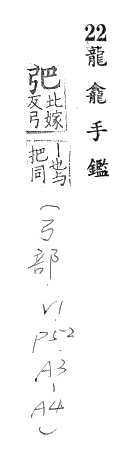 22龍龕手鑑
弝北嫁反弓
丨也与把同
(弓部.V1.P52.A3-A4)